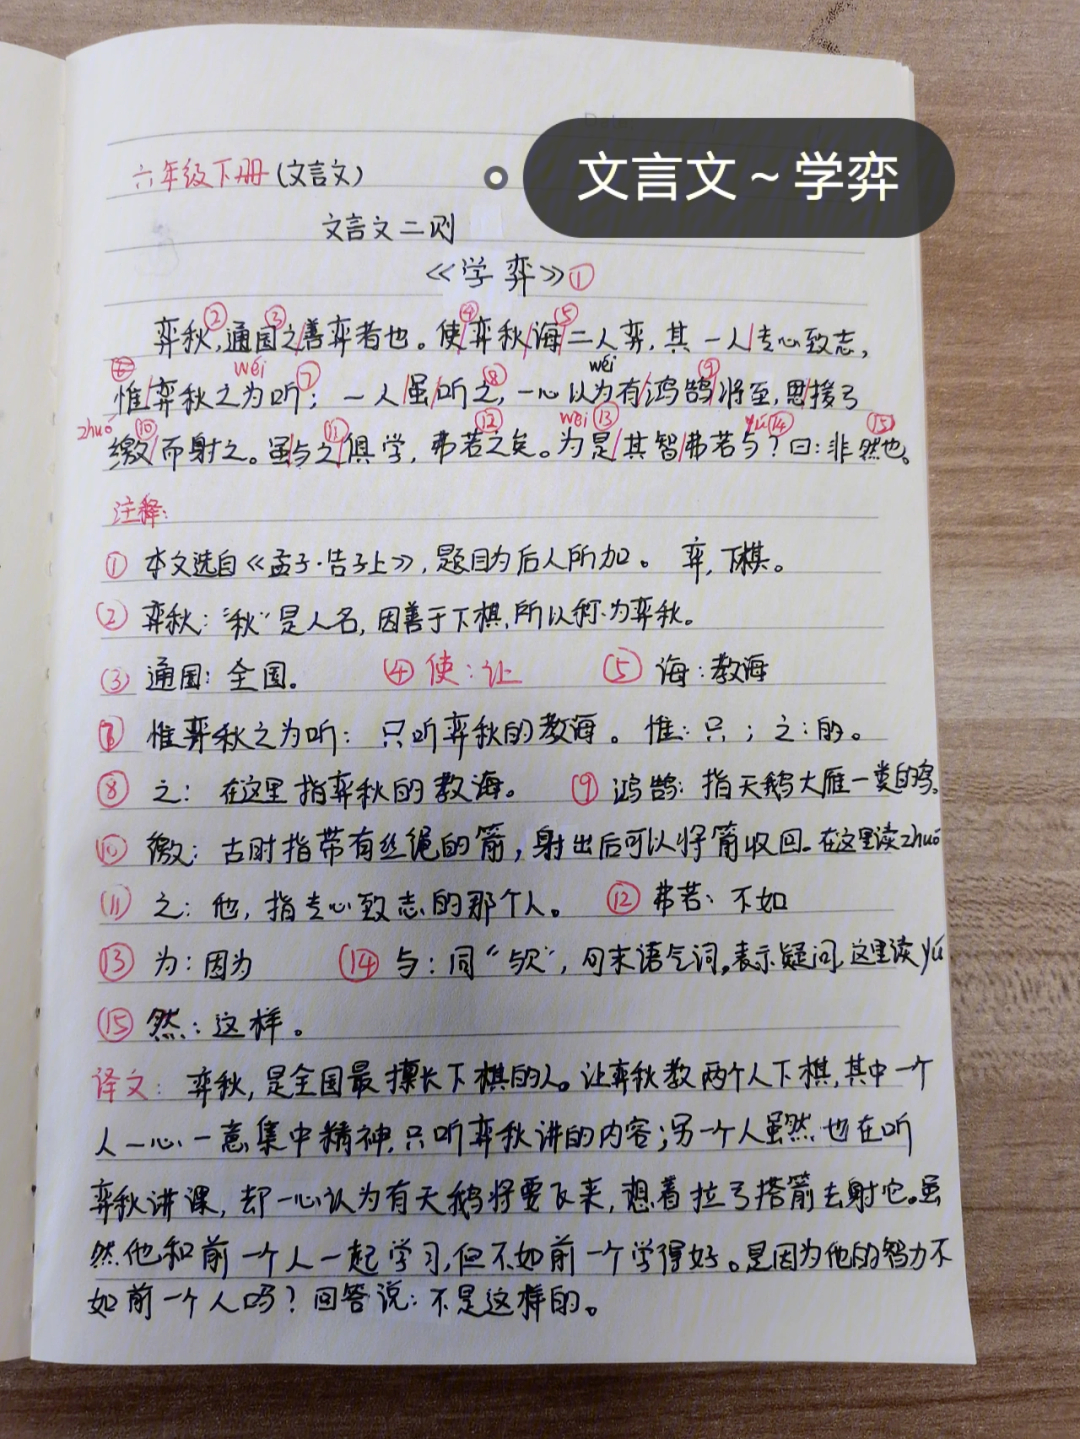 文言文~学弈
六年级下册(文言文)
文言文二则
《学弈》①
弈秋②,通国③之善弈者也。使④弈秋诲⑤二人弈,其一人专心致志,
惟⑥弈秋之为wéi听⑦;一人虽听之⑧,一心以为wéi有鸿鹄⑨将至,思援弓
缴zhuó⑩而射之。虽与之⑪俱学,弗若⑫之矣。为wèi⑬是其智弗若与yú⑭?曰:非然⑮也。
注释:
① 本文选自《孟子·告子上》,题目为后人所加。 弈,下棋。
② 弈秋:"秋"是人名,因善于下棋,所以称为弈秋。
③ 通国:全国。 ④ 使:让 ⑤ 诲:教诲
⑦ 惟弈秋之为听:只听弈秋的教诲。惟:只;之:的。
⑧ 之:在这里指弈秋的教诲。 ⑨ 鸿鹄:指天鹅大雁一类的鸟。
⑩ 缴:古时指带有丝绳的箭,射出后可以将箭收回。在这里读zhuó
⑪ 之:他,指专心致志的那个人。 ⑫ 弗若:不如
⑬ 为:因为 ⑭ 与:同"欤",句末语气词,表示疑问,这里读yú
⑮ 然:这样。
译文:弈秋,是全国最擅长下棋的人。让弈秋教两个人下棋,其中一个
人一心一意集中精神,只听弈秋讲的内容;另一个人虽然也在听
弈秋讲课,却一心认为有天鹅将要飞来,想着拉弓搭箭去射它。虽
然他和前一个人一起学习,但不如前一个学得好。是因为他的智力不
如前一个人吗?回答说:不是这样的。